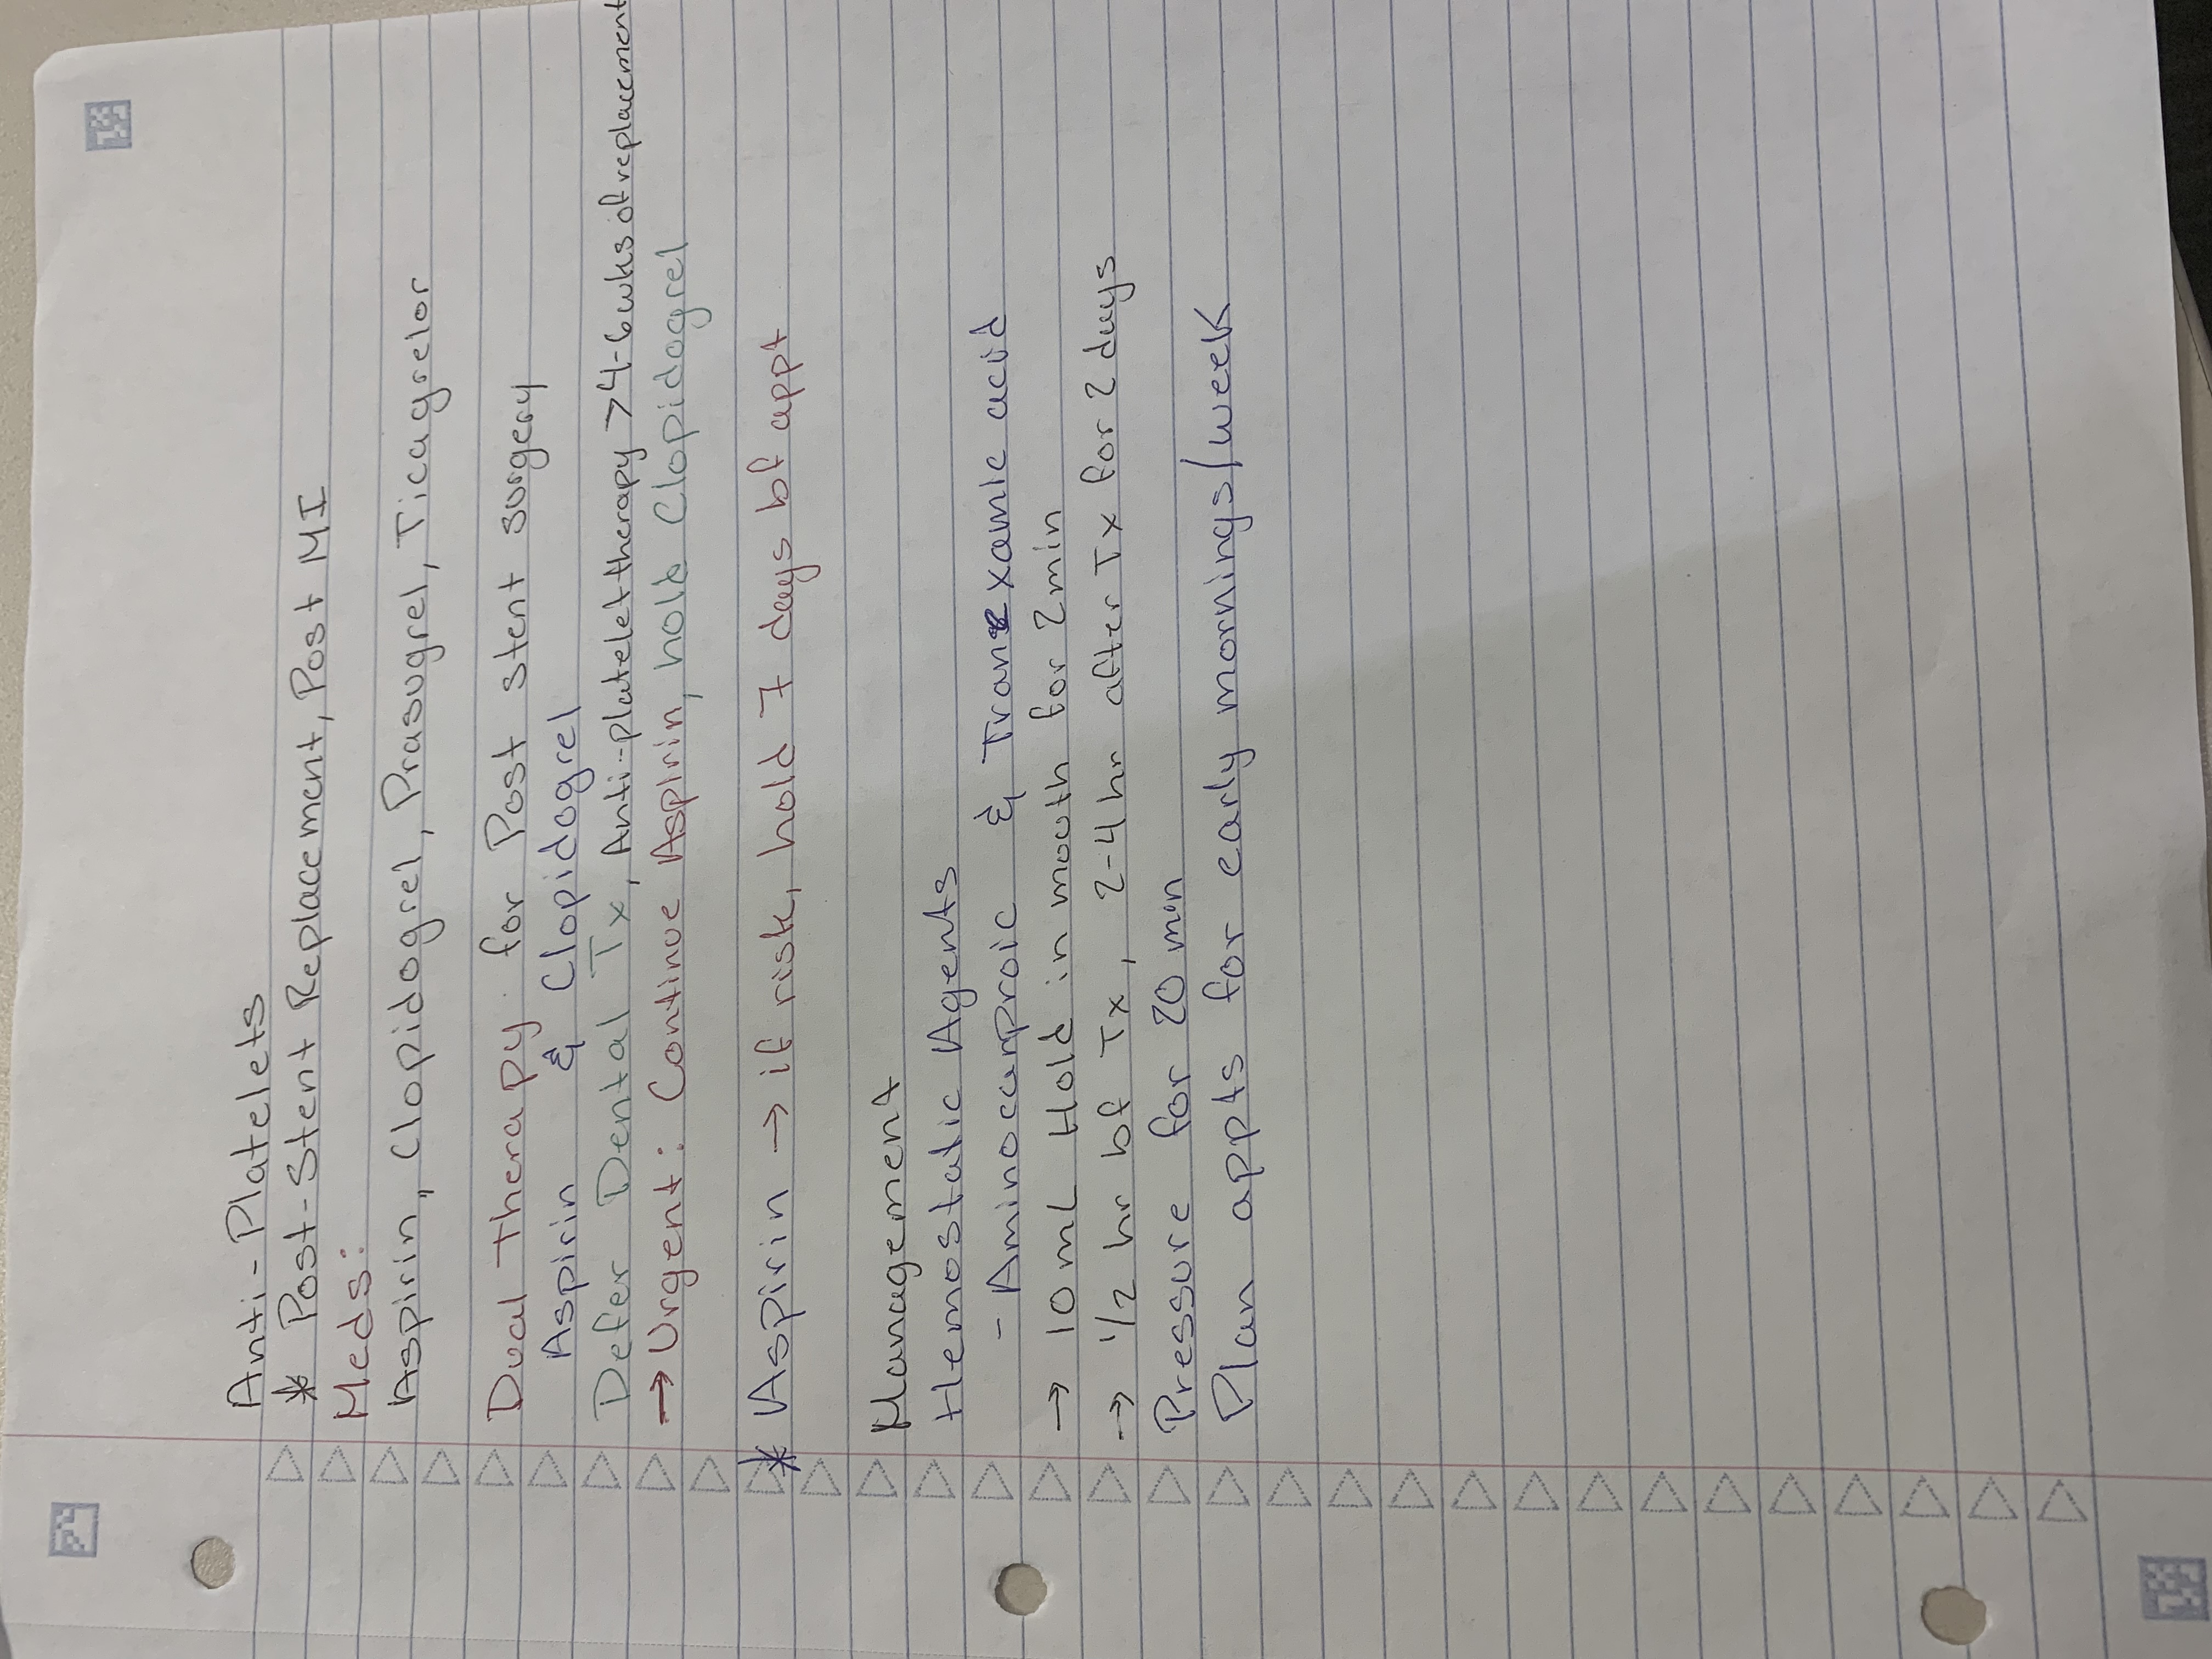 Anti-Platelets
* Post-Stent Replacement, Post MI
Meds:
Aspirin, Clopidogrel, Prasugrel, Ticagrelor
Dual therapy for Post stent surgery
Aspirin & Clopidogrel
Defer Dental Tx, Anti-platelet therapy >4-6 wks of replacement
→ Urgent: Continue Aspirin, hold Clopidogrel
* Aspirin → if risk, hold 7 days bf appt
Management
Hemostatic Agents
- Aminocarproic & Tranexamic acid
→ 10 mL Hold in mouth for 2min
→ 1/2 hr bf Tx, 2-4 hr after Tx for 2 days
Pressure for 20 min
Plan appts for early mornings/week